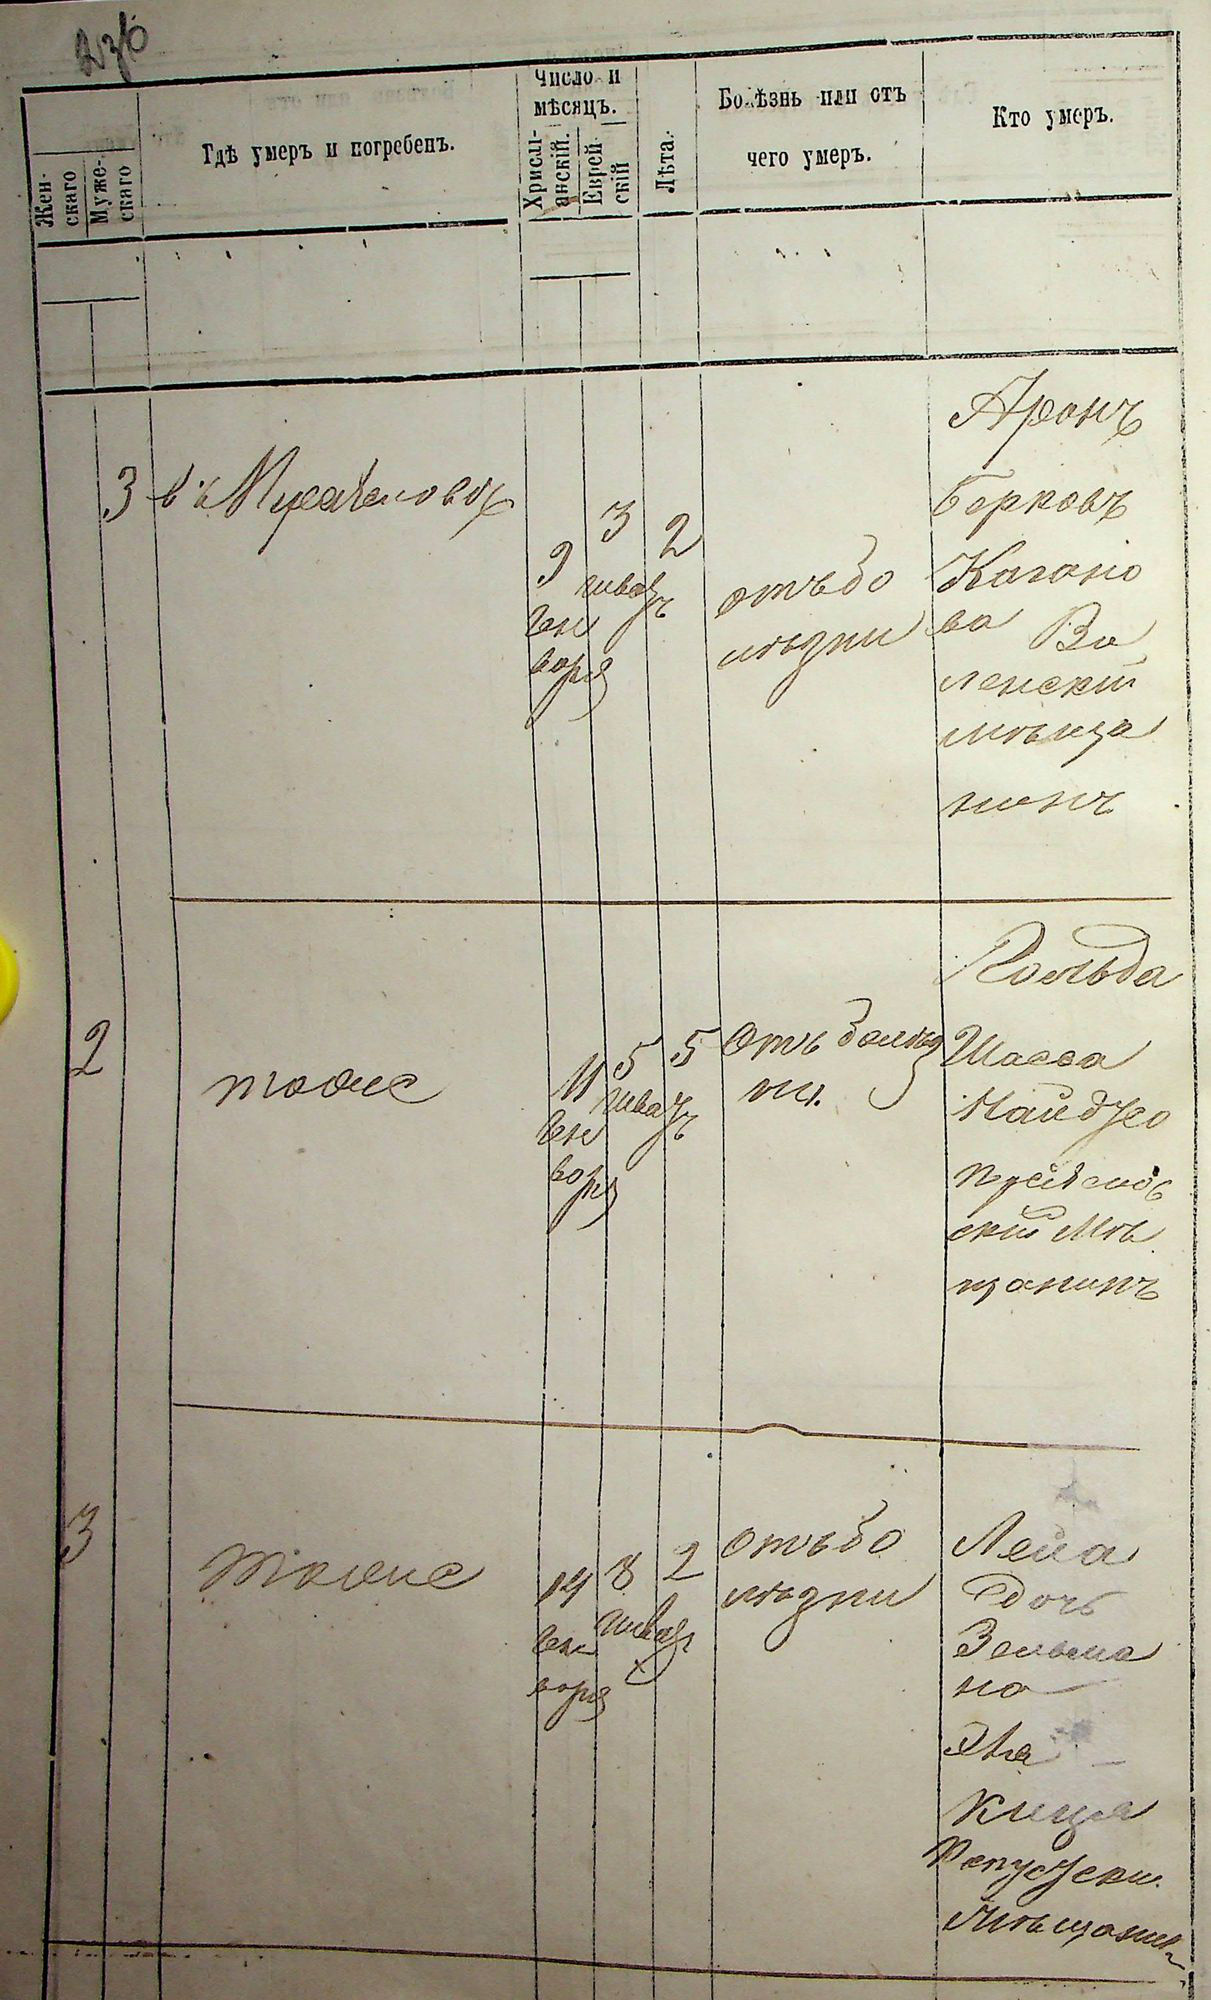 236
Жен-
скаго
Муже-
скаго
Гдѣ умеръ и погребенъ.
Число и
мѣсяцъ.
Христі-
анскій.
Еврей-
скій
Лѣта.
Болѣзнь или отъ
чего умеръ.
Кто умеръ.
3
въ
9
Ген
воря
3
шваръ
2
отъ бо
лѣзни
Аронъ
Берковъ
Кагано
ва Во
ленскій
мѣща
нинъ
2
тоже
11
Ген
воря
5
шваръ
5
отъ болѣз
ни.
Гольда
мѣ
щанинъ
3
тоже
14
Ген
воря
8
2
отъ бо
лѣзни
Лейа
дочъ
Зельма
на
мѣщанин